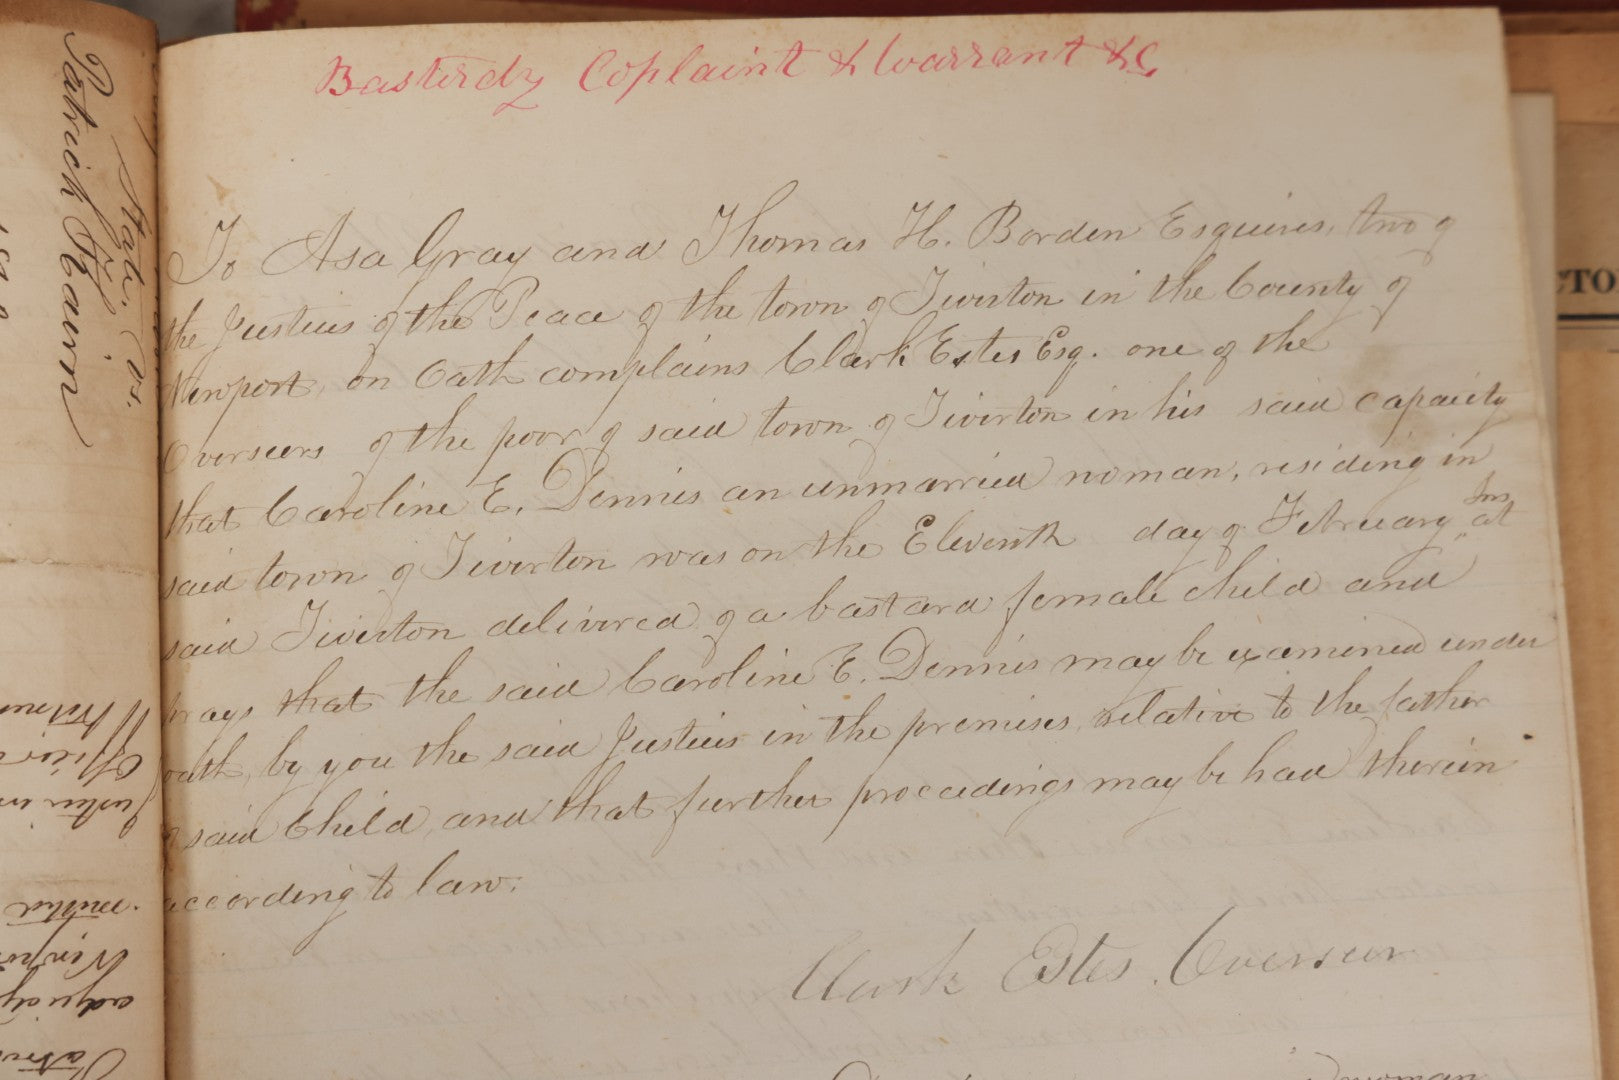 Basterdy Coplaint & Warrant &c,
To Asa Gray and Thomas H. Borden Esquires, two of
the Justices of the Peace of the town of Tiverton in the County of
Newport, on Oath complains Clark Estes Esq. one of the
Overseers of the poor of said town of Tiverton in his said capacity
that Caroline E. Dennis an unmarried woman, residing in
said town of Tiverton was on the Eleventh day of February Ins, at
said Tiverton delivered of a bastard female child and
prays that the said Caroline E. Dennis may be examined under
oath, by you the said Justices in the premises, relative to the father
of said Child, and that further proceedings may be had therein
according to law.
Clark Estes. Overseer
woman
State vs.
Patrick
CTO